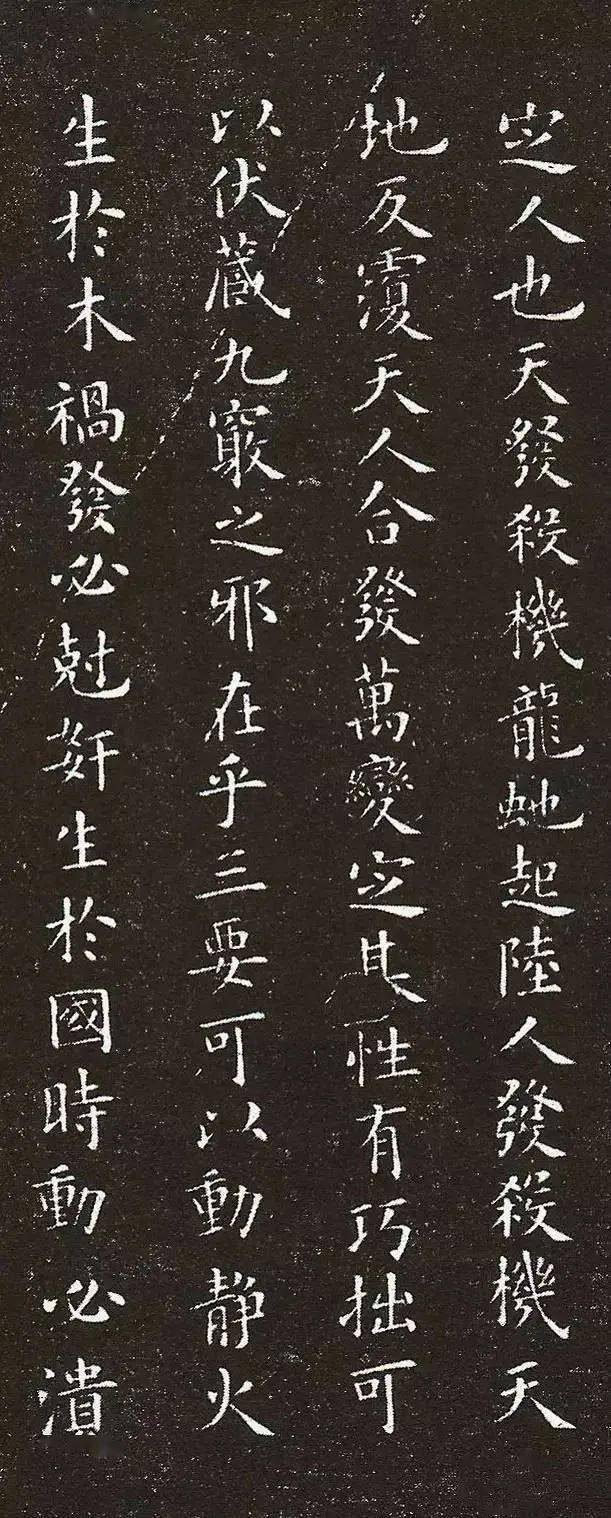 定人也天發殺機龍虵起陸人發殺機天
地反覆天人合發萬變定基性有巧拙可
以伏藏九竅之邪在乎三要可以動静火
生於木禍發必尅姧生於國時動必潰